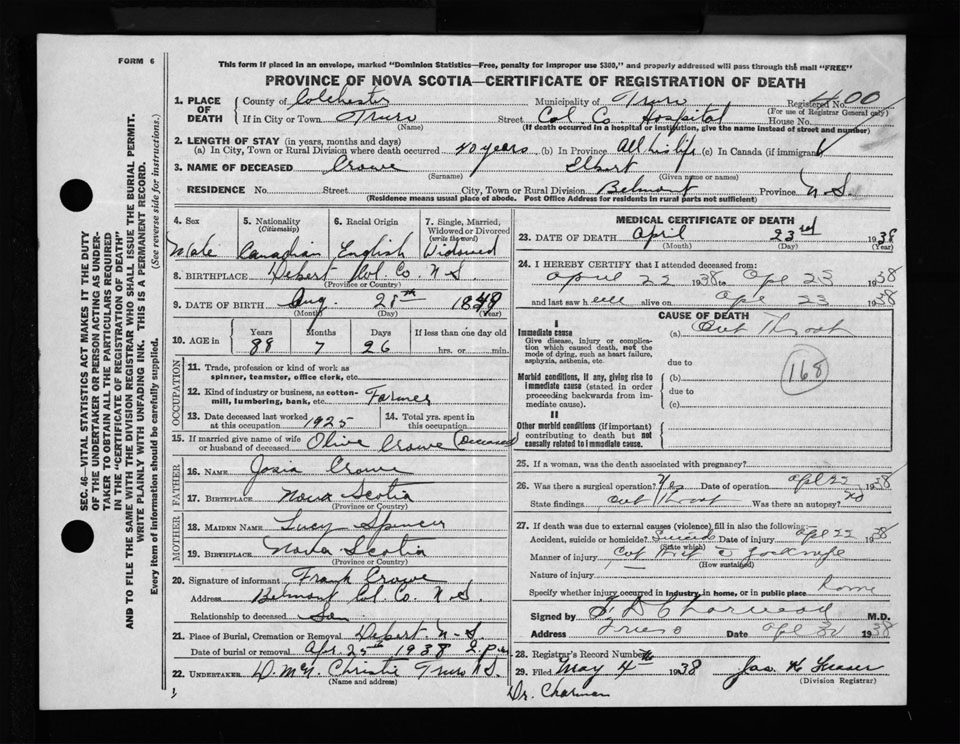 FORM 6
This form if placed in an envelope, marked "Dominion Statistics—Free, penalty for improper use $300," and properly addressed will pass through the mail "FREE"
PROVINCE OF NOVA SCOTIA—CERTIFICATE OF REGISTRATION OF DEATH
SEC. 46—VITAL STATISTICS ACT MAKES IT THE DUTY
OF THE UNDERTAKER OR PERSON ACTING AS UNDER-
TAKER TO OBTAIN ALL THE PARTICULARS REQUIRED
IN THE "CERTIFICATE OF REGISTRATION OF DEATH"
AND TO FILE THE SAME WITH THE DIVISION REGISTRAR WHO SHALL ISSUE THE BURIAL PERMIT.
WRITE PLAINLY WITH UNFADING INK. THIS IS A PERMANENT RECORD.
Every item of Information should be carefully supplied. (See reverse side for instructions.)
1. PLACE OF DEATH County of Colchester Municipality of Truro Registered No. 400
(For use of Registrar General only)
If in City or Town Truro Street Col. Co. Hospital House No.
(Name) (If death occurred in a hospital or institution, give the name instead of street and number)
2. LENGTH OF STAY (in years, months and days)
(a) In City, Town or Rural Division where death occurred years (b) In Province All his life (c) In Canada (if immigrant)
3. NAME OF DECEASED Crowe Elbert
(Surname) (Given name or names)
RESIDENCE No. Street City, Town or Rural Division Belmont Province N.S.
(Residence means usual place of abode. Post Office Address for residents in rural parts not sufficient)
4. Sex 5. Nationality (Citizenship) 6. Racial Origin 7. Single, Married, Widowed or Divorced (write the word)
Male Canadian English Widowed
8. BIRTHPLACE Debert Col. Co. N S
(Province or Country)
9. DATE OF BIRTH Aug. 28th 1849
(Month) (Day) (Year)
10. AGE in Years Months Days If less than one day old
88 7 26 hrs. or min.
OCCUPATION
11. Trade, profession or kind of work as spinner, teamster, office clerk, etc.
12. Kind of industry or business, as cotton-mill, lumbering, bank, etc. Farmer
13. Date deceased last worked at this occupation 1925 14. Total yrs. spent in this occupation
15. If married give name of wife or husband of deceased Olive Crowe (Deceased)
FATHER
16. NAME Josia Crowe
17. BIRTHPLACE Nova Scotia
(Province or Country)
MOTHER
18. MAIDEN NAME Lucy Spencer
19. BIRTHPLACE Nova Scotia
(Province or Country)
20. Signature of informant Frank Crowe
Address Belmont Col. Co. N.S.
Relationship to deceased Son
21. Place of Burial, Cremation or Removal Debert N-S.
Date of burial or removal Apr. 25th 1938
22. UNDERTAKER D. McN. Christie Truro N.S.
(Name and address)
MEDICAL CERTIFICATE OF DEATH
23. DATE OF DEATH April 23rd 1938
(Month) (Day) (Year)
24. I HEREBY CERTIFY that I attended deceased from:
April 22 1938 to Apl 23 1938
and last saw h alive on Apl 23 1938
CAUSE OF DEATH
I
Immediate cause (a) Cut Throat
Give disease, injury or complica-
tion which caused death, not the
mode of dying, such as heart failure,
asphyxia, asthenia, etc. due to
168
Morbid conditions, if any, giving rise to (b)
immediate cause (stated in order due to
proceeding backwards from im-
mediate cause). (c)
II
Other morbid conditions (if important)
contributing to death but not
causally related to immediate cause.
25. If a woman, was the death associated with pregnancy?
26. Was there a surgical operation? Yes Date of operation Apl 22 1938
State findings Cut Throat Was there an autopsy? No
27. If death was due to external causes (violence) fill in also the following:
Accident, suicide or homicide? Suicide Date of injury Apl 22 1938
(State which)
Manner of injury Cut jacknife
(How sustained)
Nature of injury
Specify whether injury occurred in Industry, in home, or in public place home
Signed by M.D.
Address Truro Date 1938
28. Registrar's Record Number
29. Filed May 4 1938 Jas. Fraser
(Division Registrar)
Dr. Charman